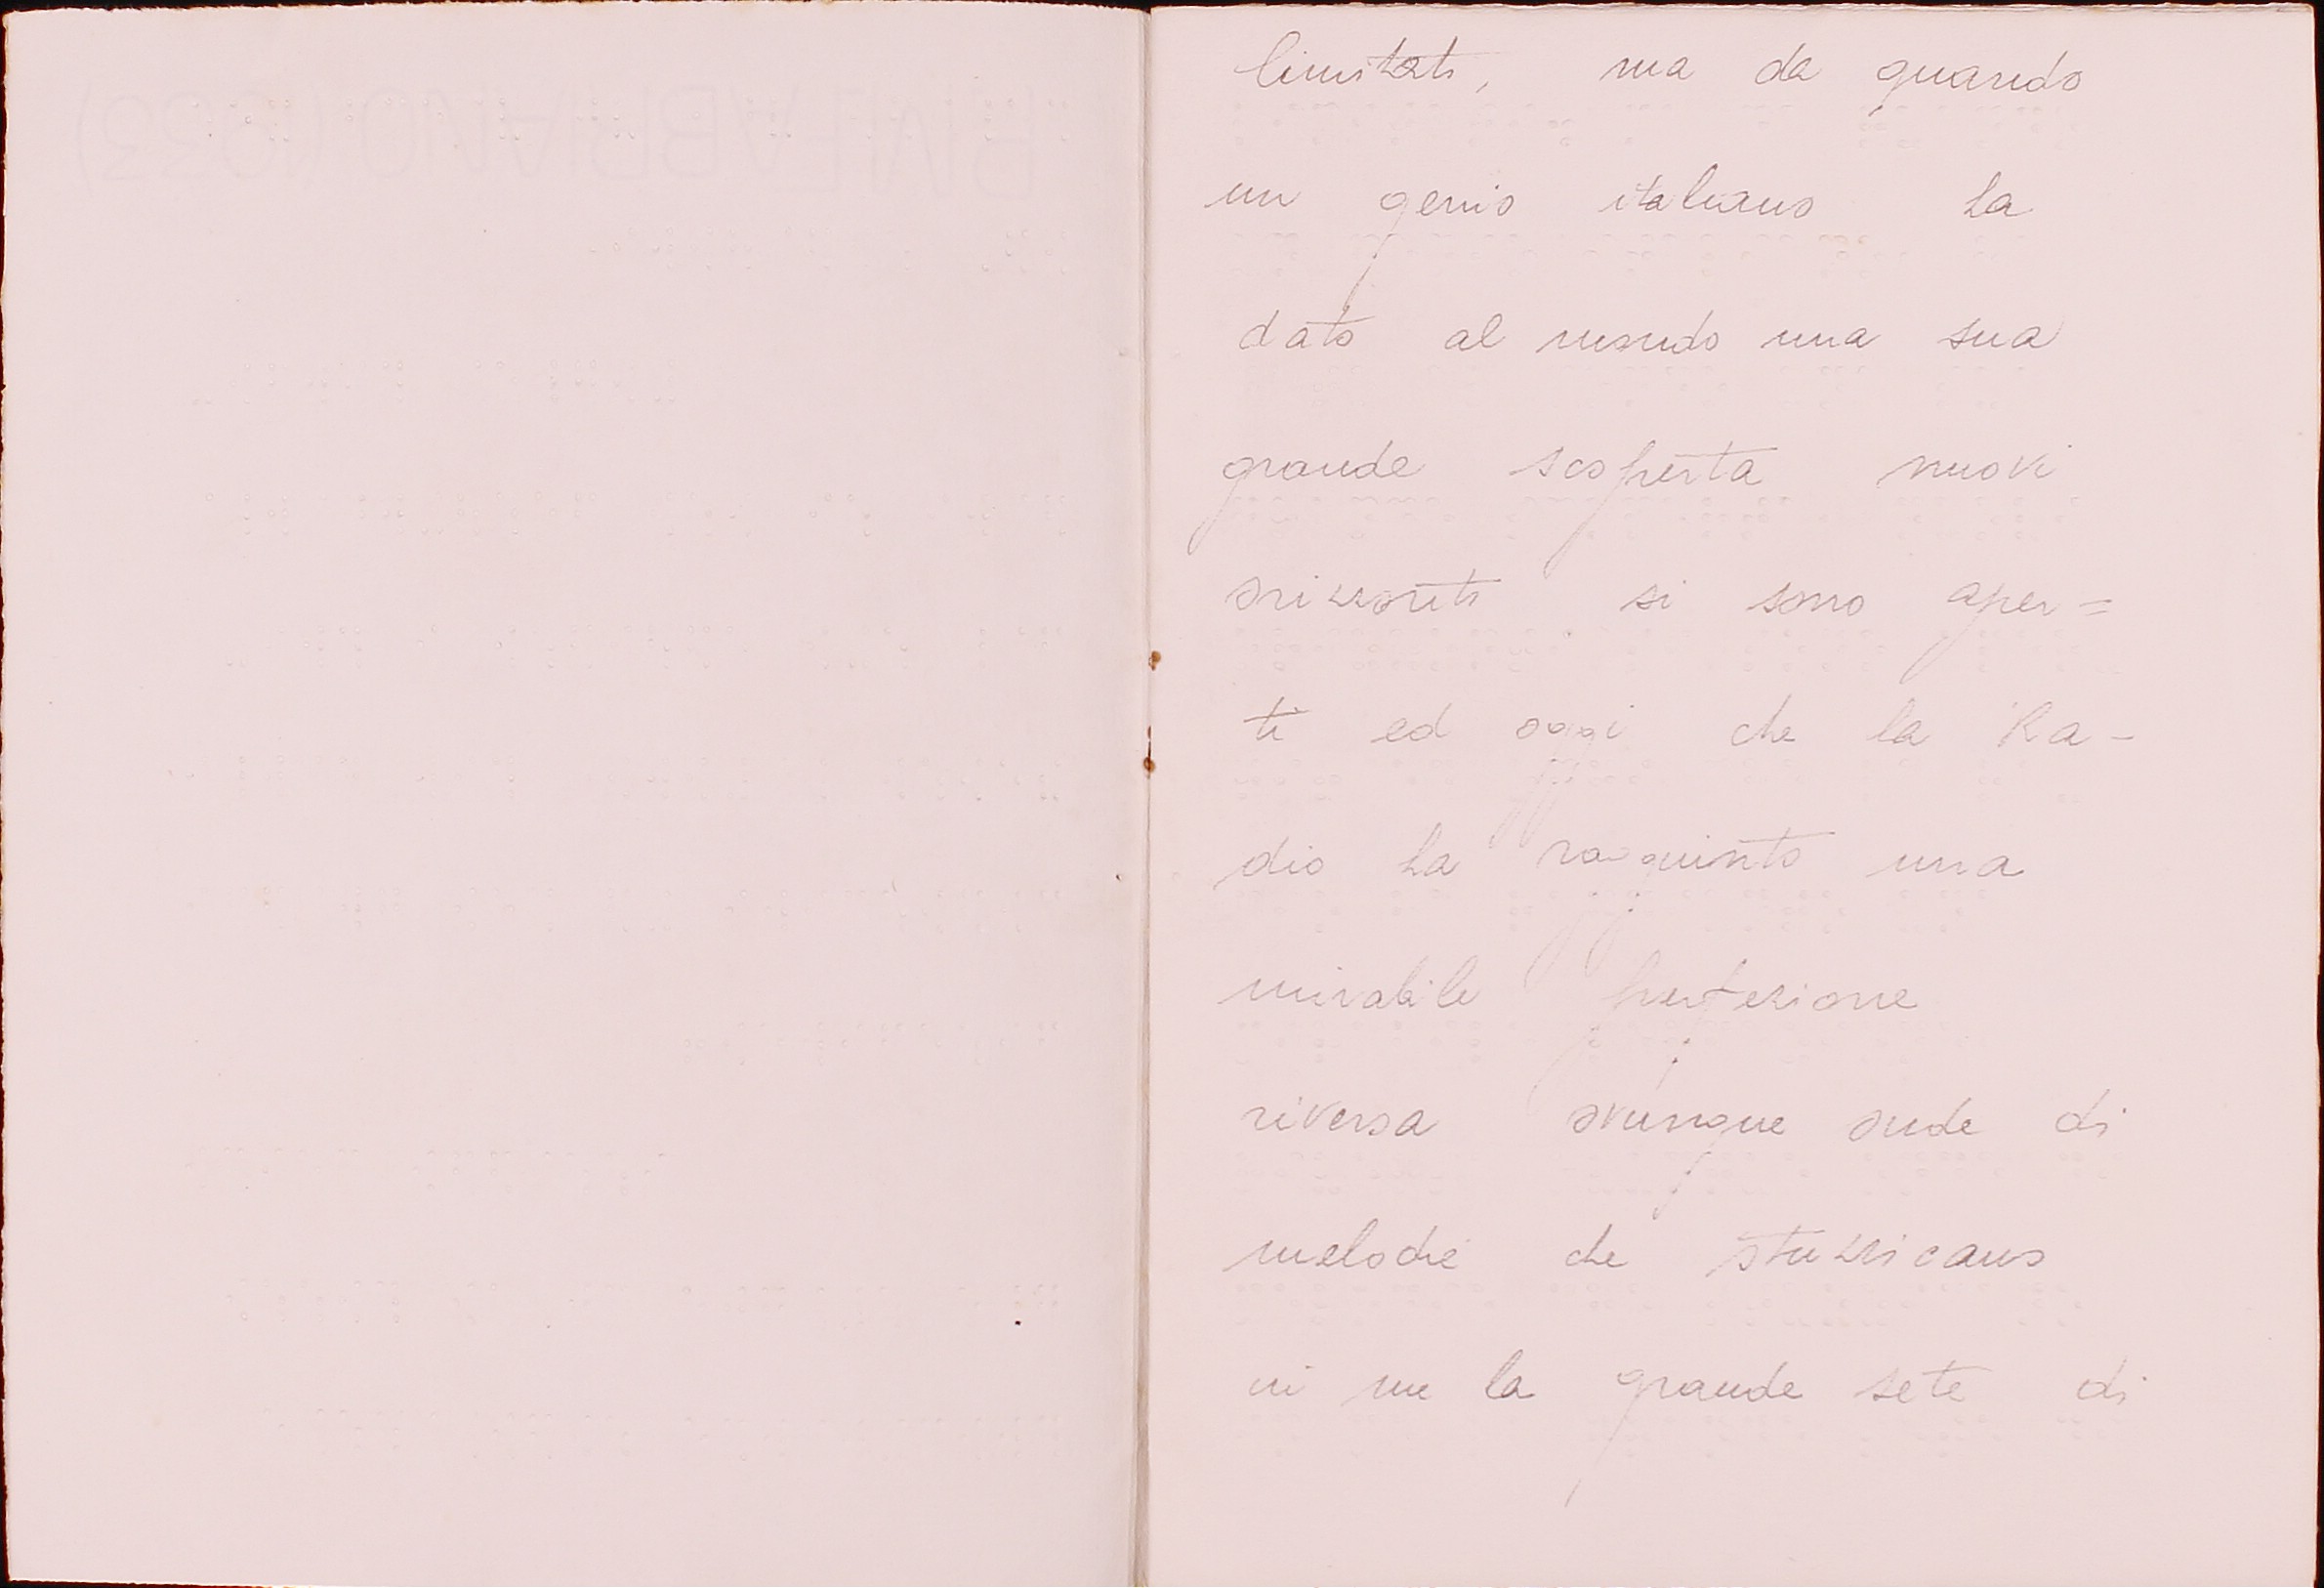 limitati, ma da quando
un genio italiano ha
dato al mondo una sua
grande scoperta nuovi
orizzonti si sono aper=
ti ed oggi che la Ra-
dio ha raggiunto una
mirabile perfezione
riversa ovunque onde di
melodie che stuzzicano
in me la grande sete di